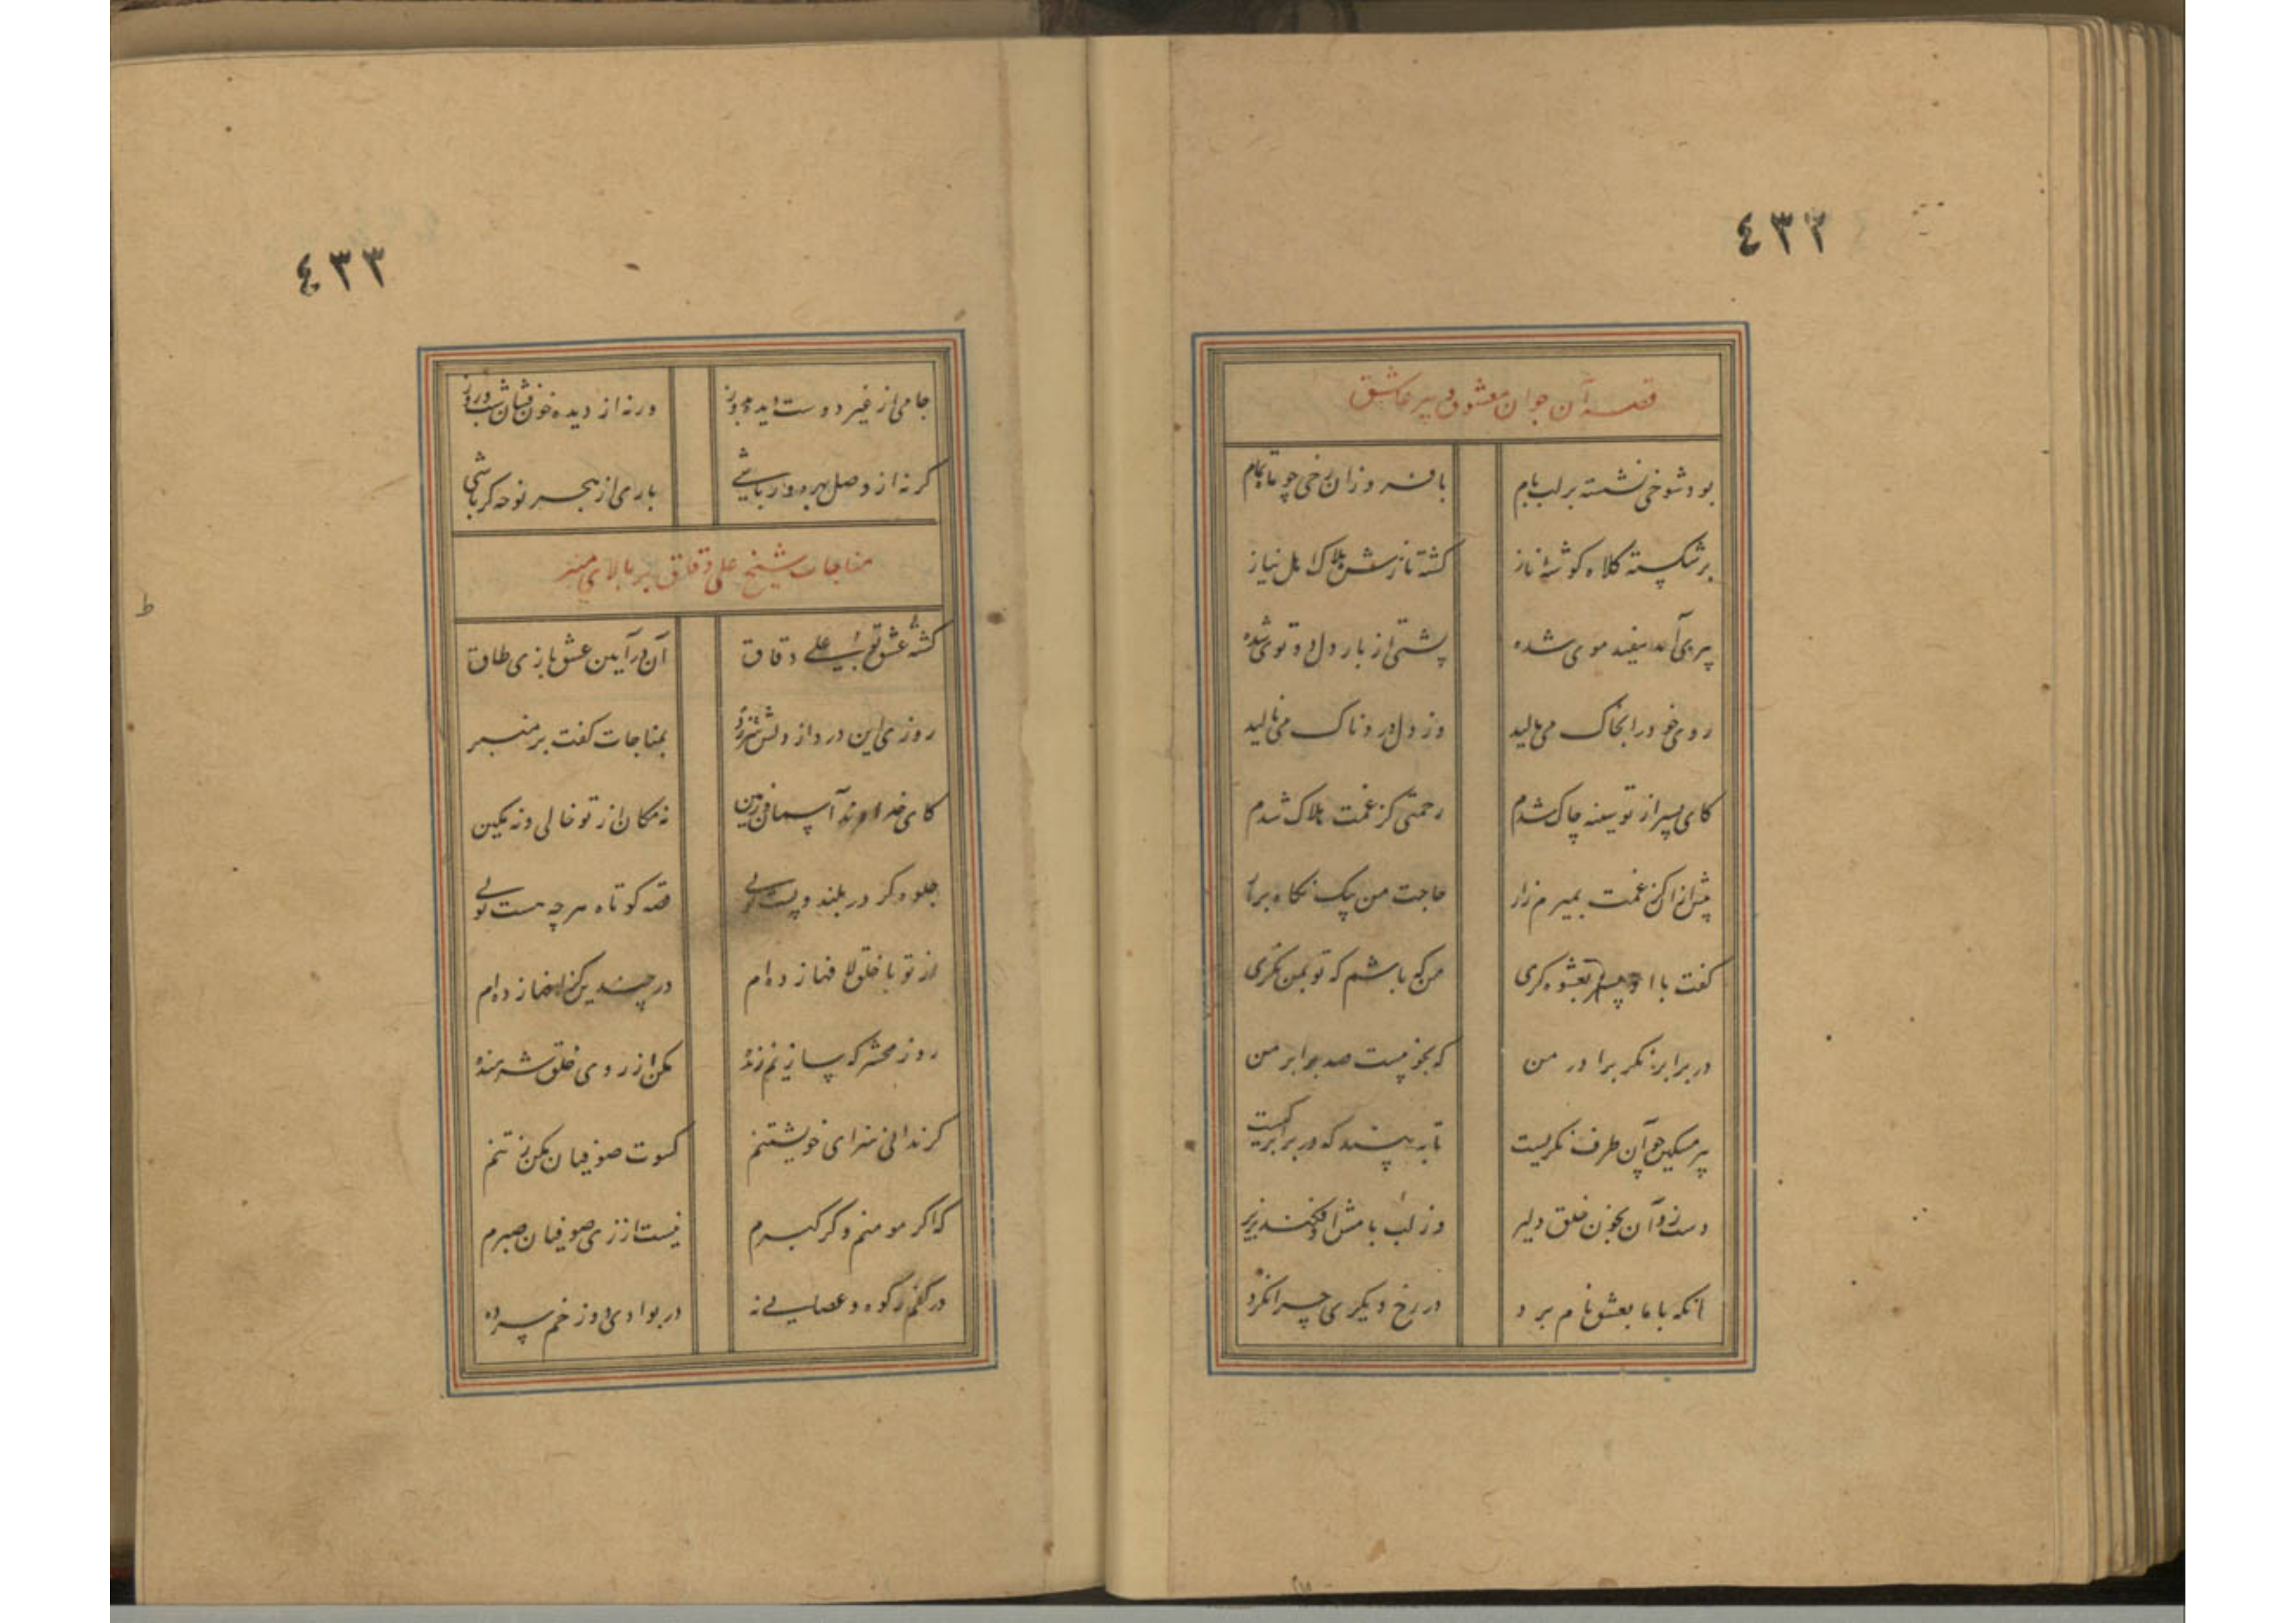 ٤٣٢
قصه آن جوان معشوق و پیر عاشق
بود شوخی نشسته بر لب بام با فروزان رخی چو ماه تمام
بر شکسته کلاه گوشه ناز گشته نازش هلاک اهل نیاز
پیری آمد سفید موی شده پشتی از بار دل دو توی شده
روی خود را بخاک می مالید وز دل دردناک می نالید
کای پسر از تو سینه چاک شدم رحمتی کز غمت هلاک شدم
پیش از آن کز غمت بمیرم زار حاجت من بیک نگاه برآر
گفت با او پسر بعشوه گری من که باشم که تو بمن نگری
در برابر نگر برادر من که بخوبیست صد برابر من
پیر مسکین چو آن طرف نگریست تا ببیند که در برابر کیست
دست زد آن بخون خلق دلیر وز لب بامش افکند بزیر
آنکه با ما بعشق نام برد در رخ دیگری چرا نگرد
٤٣٣
جامی از غیر دوست دیده بدوز ورنه از دیده خون فشان شب و روز
گر نه از وصل بهره‌ور باشی باری از هجر نوحه گر باشی
مناجات شیخ علی دقاق بر بالای منبر
کشته عشق بو علی دقاق آن در آیین عشق بازی طاق
روزی این درد از دلش سر زد بمناجات گفت بر منبر
کای خداوند آسمان و زمین نه مکان از تو خالی و نه مکین
جلوه گر در بلند و پست تویی قصه کوتاه هر چه هست تویی
از تو با خلق لافها زده ام در چندین گزافها زده ام
روز محشر که سازیم زنده مکن از روی خلق شرمنده
گر ندانی سزای خویشتنم کسوت صوفیان مکن ز تنم
که اگر مومنم و گر گبرم نیست از زی صوفیان صبرم
در کفم رکوه و عصایی نه در بوادی دوزخم سرده
ط